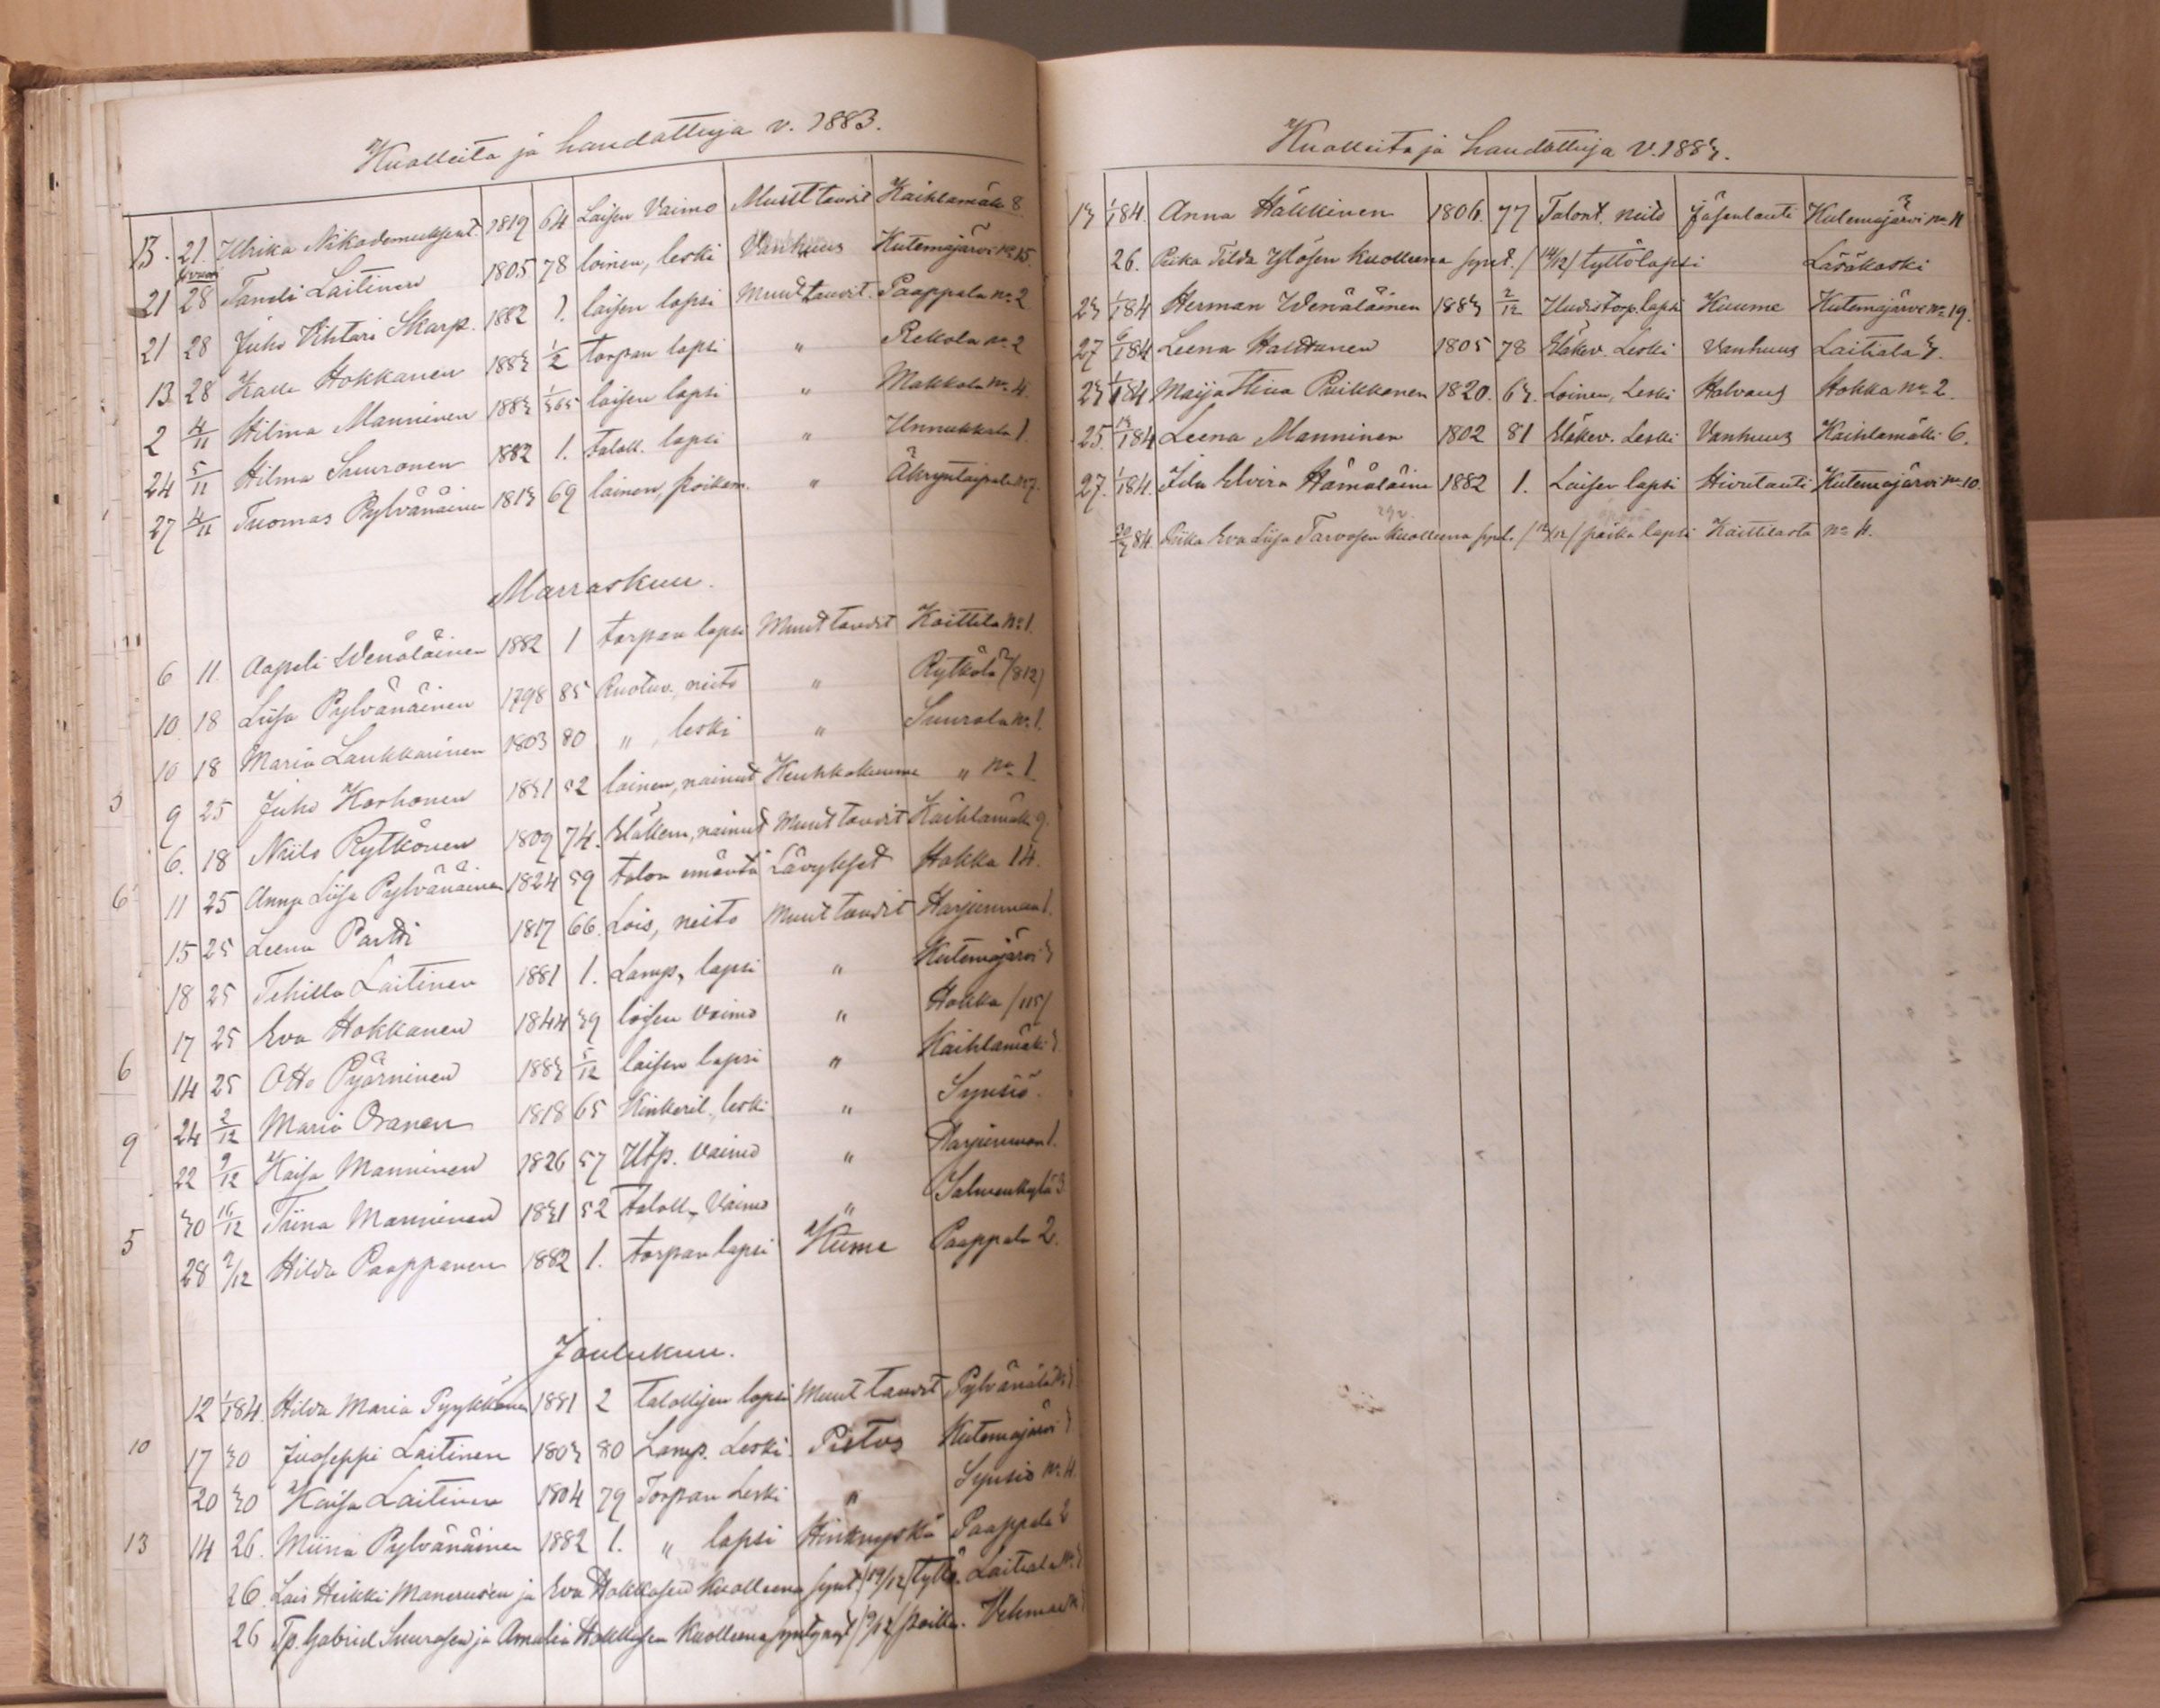 Kuolleita ja haudattuja v. 1883.
13. 21. Ulrika Nikodemuksent. 1819 64 Loisen Vaimo Muut taudit Kaihlamäki 8
21 28 Taneli Laitinen 1805 78 loinen, leski Vanhuus Kutemajärvi No 15.
21 28 Juho Vihtari Skarp. 1882 1. loisen lapsi Muut taudit. Paappala No 2
13 28 Kalle Hokkanen 1883 1/2 torpan lapsi " Rekola No 2
2 4/11 Hilma Manninen 1883 1/365 loisen lapsi " Makkola No 4.
24 5/11 Hilma Suuronen 1882 1. taloll. lapsi " Unnukkala 1.
27 4/11 Tuomas Pylvänäinen 1813 69 loinen, poikam. "
Marraskuu.
6 11. Aapeli Wenäläinen 1882 1 torpan lapsi Muut taudit Koittila No 1
10 18 Liisa Pylvänäinen 1798 85 Ruotuv., neito " Rytkölä (812)
10 18 Maria Laukkarinen 1803 80 " , leski " Suurola No 1.
9 25 Juho Korhonen 1831 52 loinen, nainut Keuhkokuume " No 1
6. 18 Niilo Rytkönen 1809 74. Eläkem, nainut Muut taudit Kaihlamäki 9.
11 25 Anna Liisa Pylvänäinen 1824 59 talon emäntä Lävykset Hokka 14.
15 25 Leena Partti 1817 66. Lois, neito Muut taudit Harjunmaa 1.
18 25 Tehilla Laitinen 1881 1. Lamp, lapsi " Kutemajärvi 3
17 25 Eva Hokkanen 1844 39 loisen vaimo " Hokka (115)
14 25 Otto Pyörninen 1883 5/12 loisen lapsi " Kaihlamäki 3
24 2/12 Maria Oranen 1818 65 Kinkeril., leski " Synsiö.
22 9/12 Kaisa Manninen 1826 57 Utp. vaimo " Harjunmaa 1.
30 16/12 Tiina Manninen 1831 52 taloll. Vaimo " Salmenkylä 3
28 2/12 Hilda Paappanen 1882 1. torpan lapsi Kume Paappala 2.
Joulukuu.
12 1/1 84. Hilda Maria Pyykkönen 1881 2 talollisen lapsi Muut taudit Pylvänälä
17 30 Juoseppi Laitinen 1803 80 Lamp. Leski. Pistos Kutemajärvi 3
20 30 Kaisa Laitinen 1804 79 Torpan Leski " Synsiö No 4.
14 26. Miina Pylvänäinen 1882 1. " lapsi Hinkuyskä Paappala 2
26. Lois Heikki ja Eva Hokkosen kuolleena synt. (19/12) tyttö. Laitiala No 3
26 Tp. Gabriel Suurosen ja Amalia Hokkosen Kuolleena syntynyt (9/12) poika. Vehmaa
5
6
6
9
5
10
13
Kuolleita ja haudattuja v. 1883.
13 1/1 84. Anna Häkkinen 1806. 77 Talont. neito Jäsentauti Kutemajärvi No 11
26. Piika Tilda Ylösen kuolleena synt. (14/12) tyttölapsi Läsäkoski
23 1/1 84 Herman Wenäläinen 1883 2/12 Uudistorp. lapsi Kuume Kutemajärvi No 19.
27 6/1 84 Leena Halttunen 1805 78 Eläkev. Leski Vanhuus Laitiala 3.
23 1/1 84 Maija Stiina Puikkonen 1820. 63. Loinen, Leski Halvaus Hokka No 2.
25. 13/1 84 Leena Manninen 1802 81 Eläkev. Leski Vanhuus Kaihlamäki 6.
27. 1/1 84. Ida Elvira Hämäläine 1882 1. Loisen lapsi Hivutauti Kutemajärvi No 10.
84. Piika Eva Liisa Tarvosen kuolleena synt. poika lapsi Koittilasta No 4.